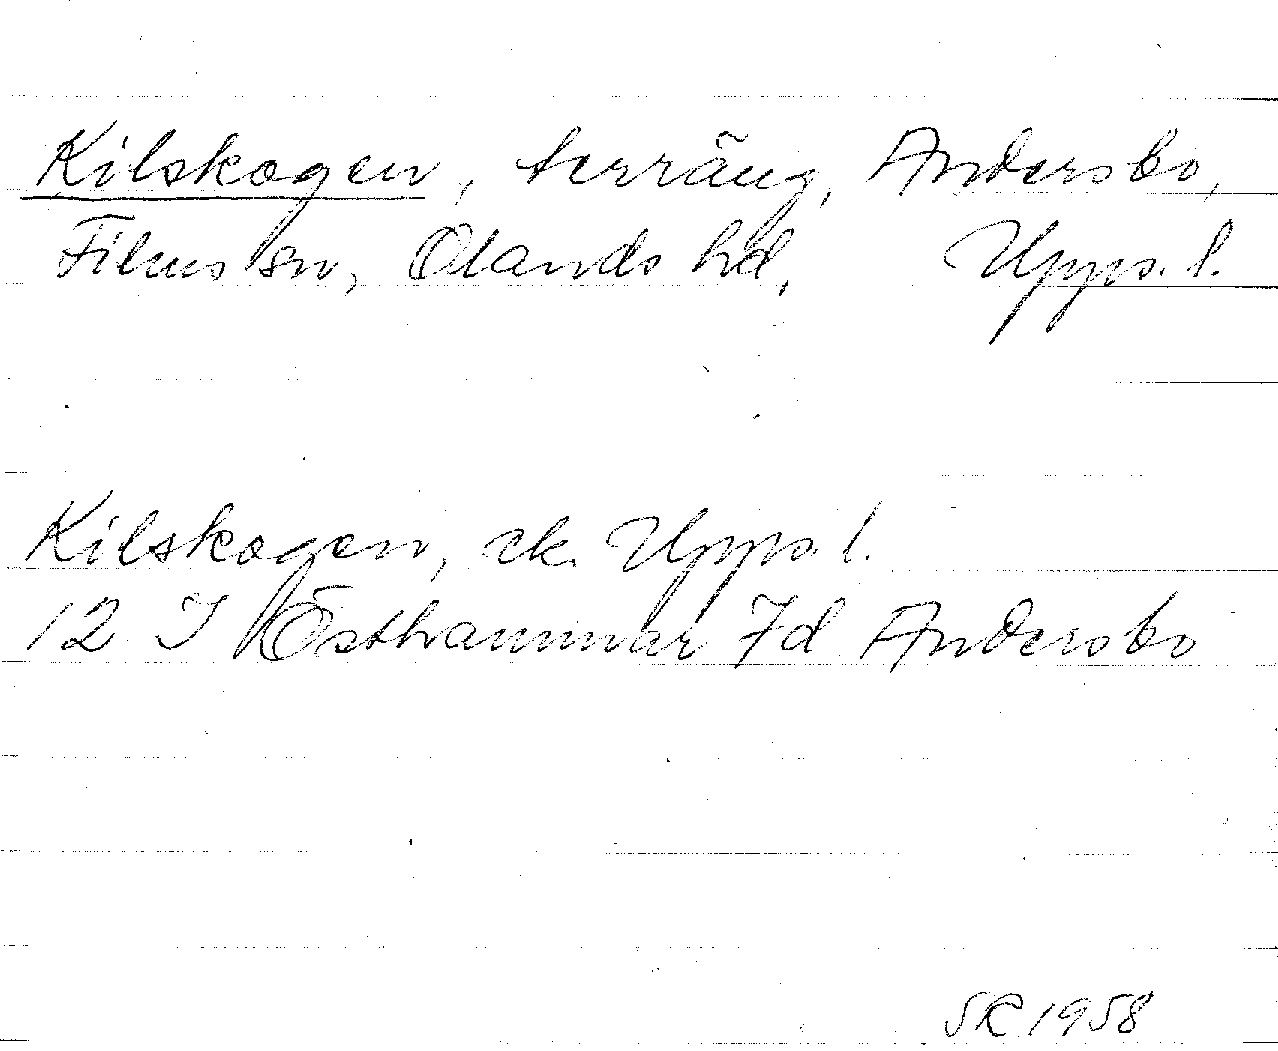 Kilskogen, terräng, Andersbo,
Films sn, Olands hd, Upps. l.
Kilskogen, ek. Upps. l.
12 I Östhammar 7d Andersbo
SR 1958